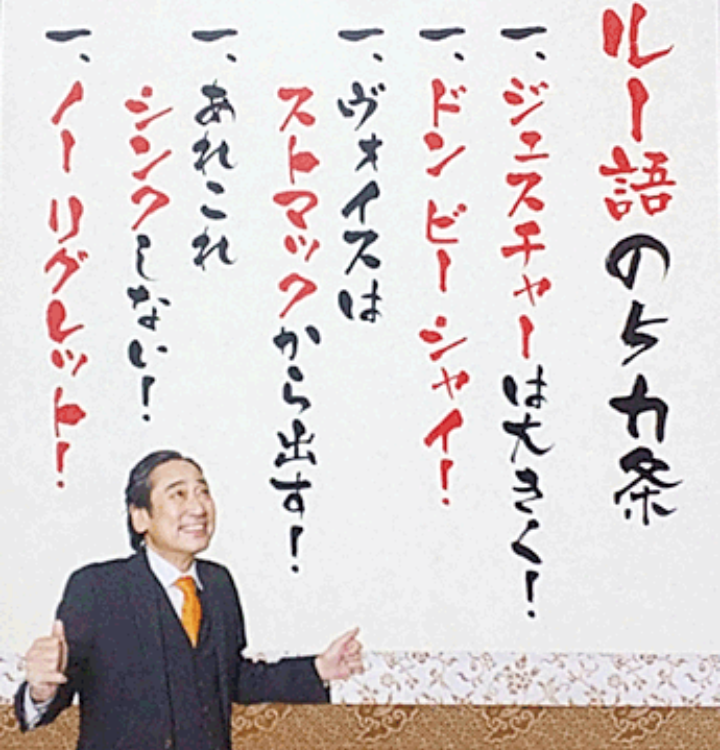 ルー語の5カ条
一、ジェスチャーは大きく!
一、ドン ビー シャイ!
一、ヴォイスは
ストマックから出す!
一、あれこれ
シンクしない!
一、ノー リグレット!